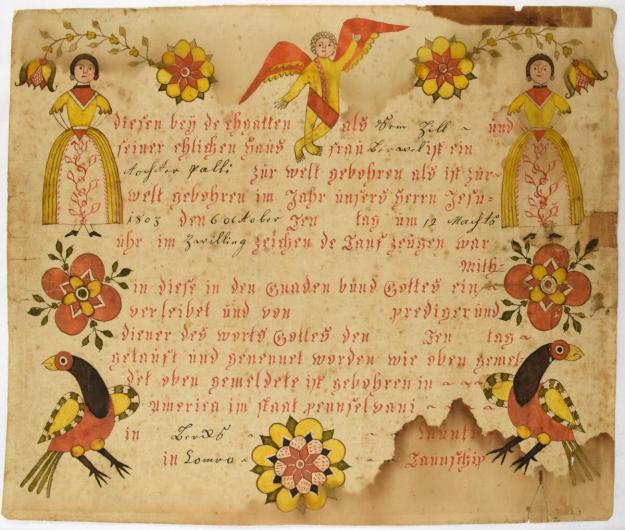 diesen beÿ de ehgatten als Wem Zill ünd
seiner ehlichen Haus fraü ist ein
tochter Palli zür welt gebohren als ist zür
welt gebohren im Jahr ünsers Herrn Jesu
1803 den 6 october Ten tag um 12 Nachts
ühr im Zwilling zeichen de Taüf zeügen war
Mith-
in diese in den Gnaden bünd Gottes ein
verleibet ünd von prediger ünd
diener des worts Gottes den Ten tag
getaüft ünd genennet worden wie oben gemel-
det oben gemeldete ist gebohren in
America im staat pennselvani
in Berks
in Taünschip